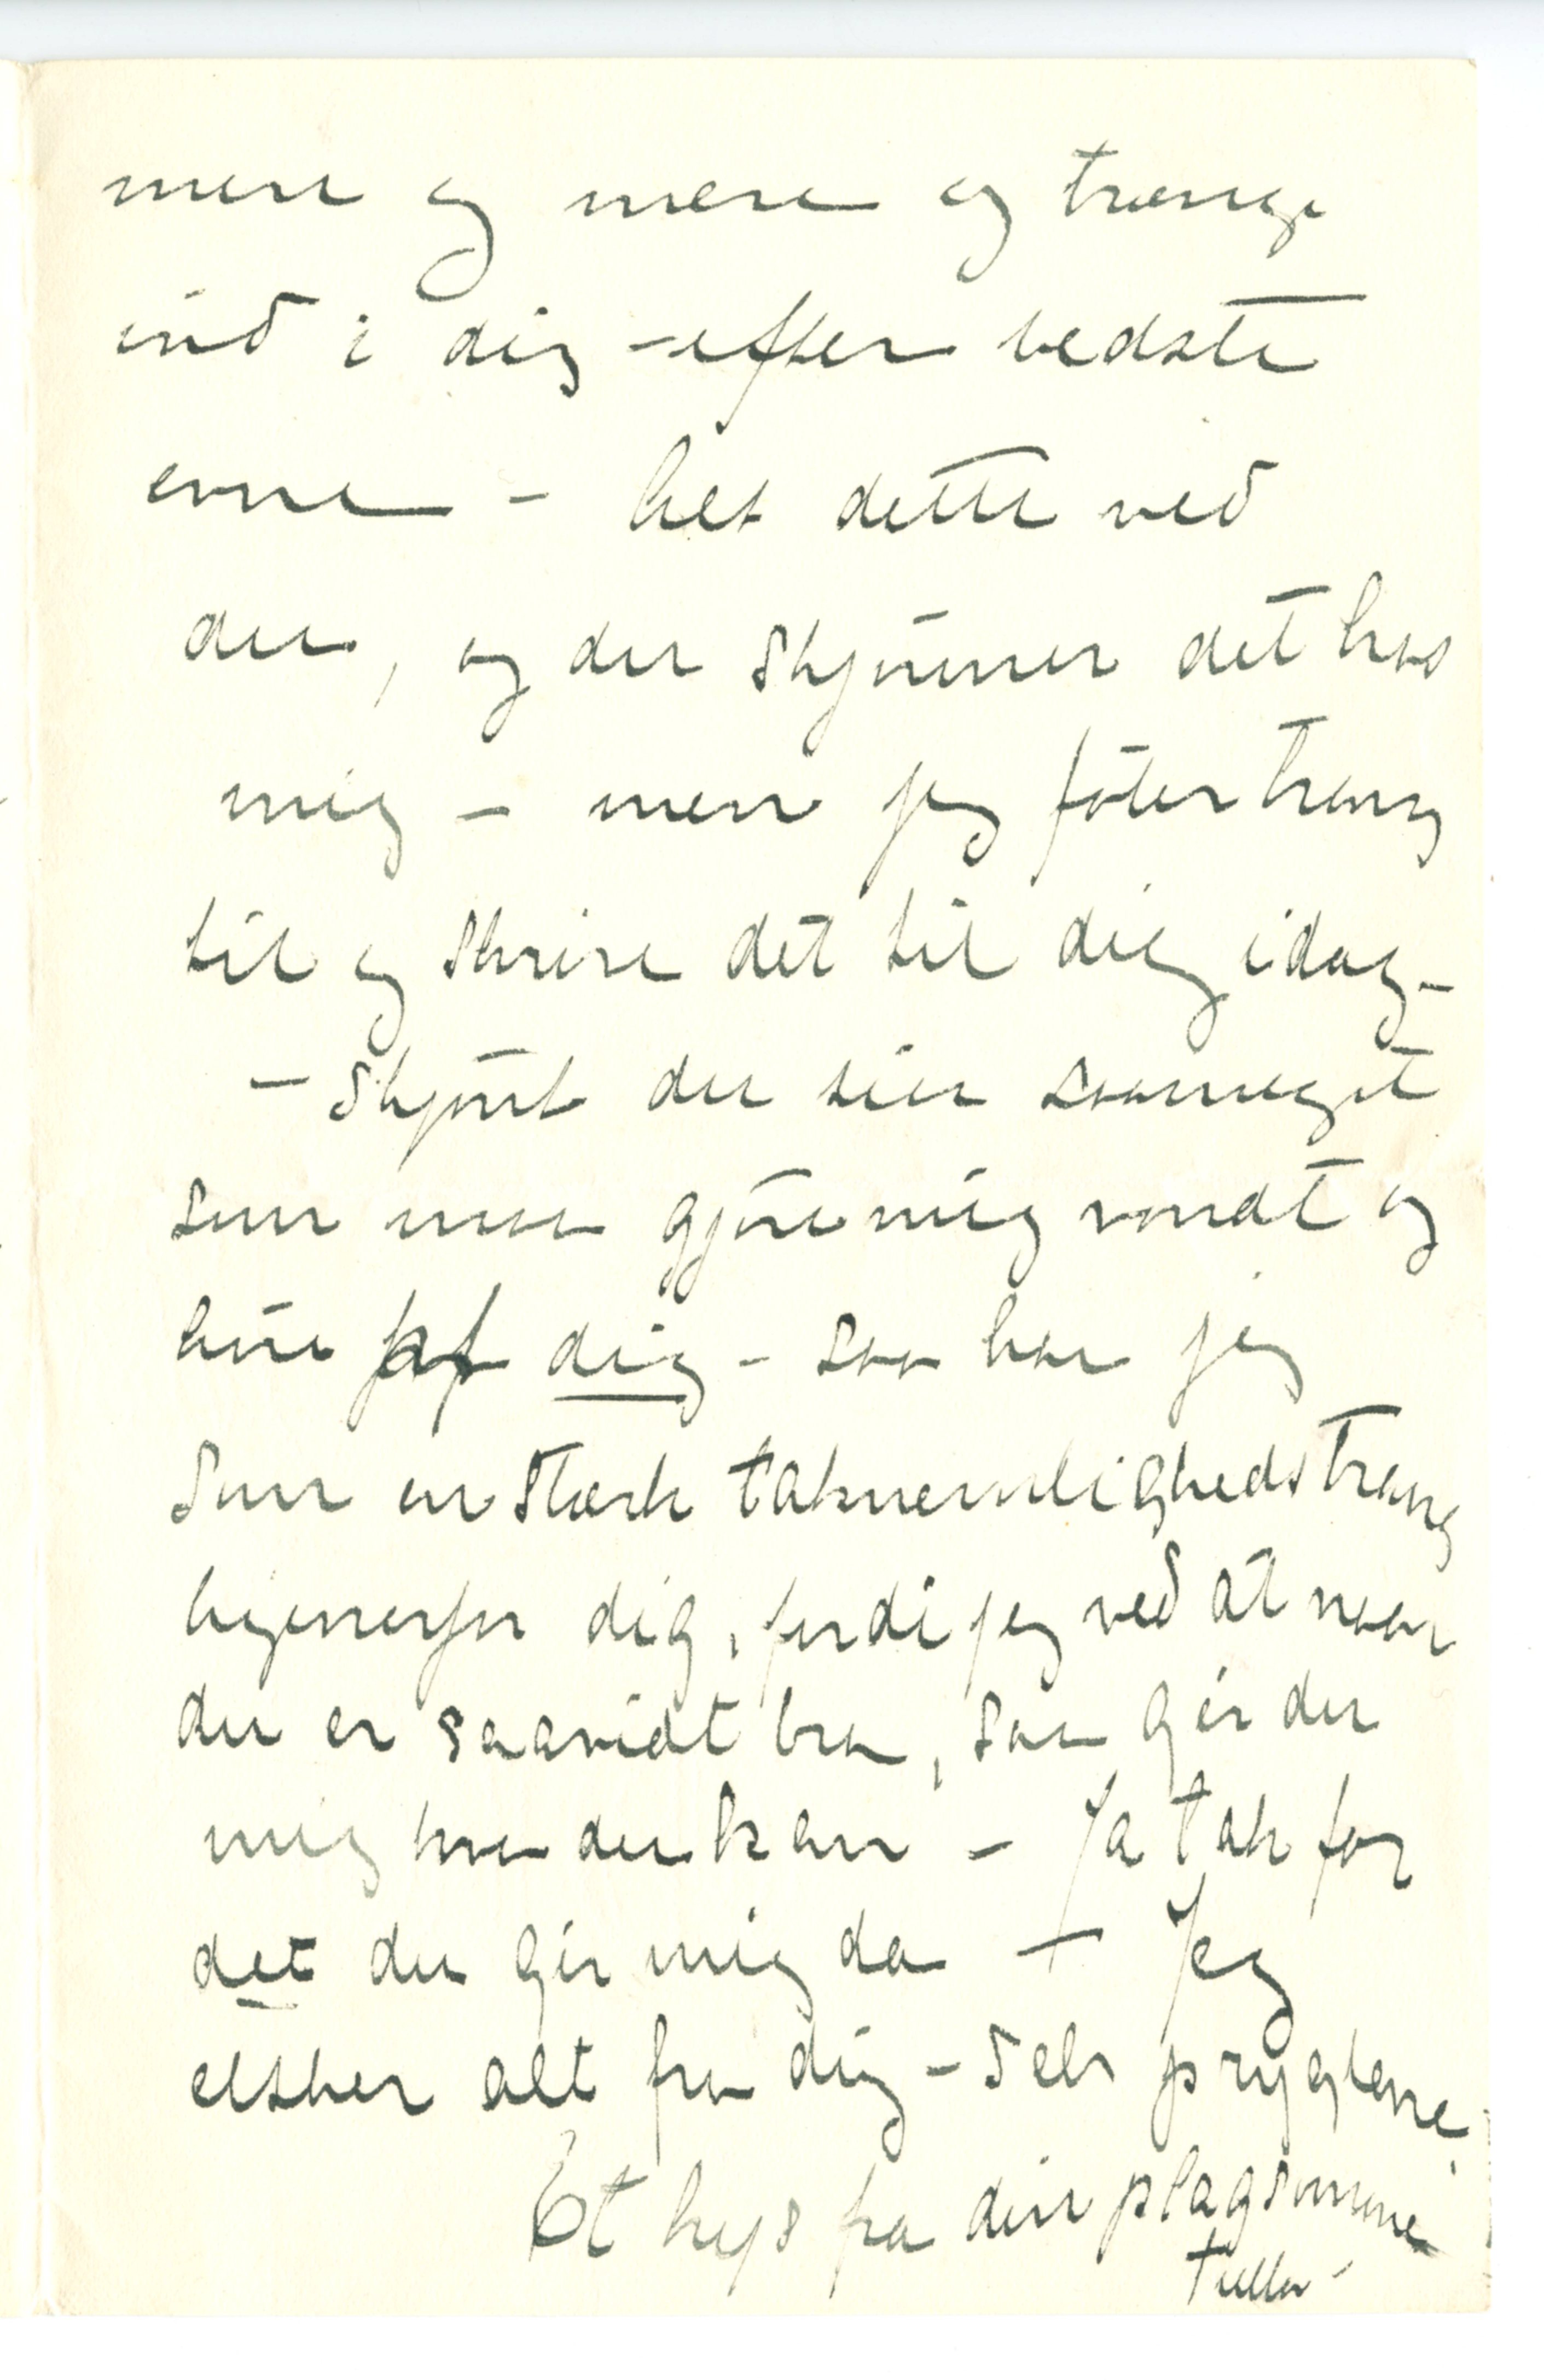 mere og mere og trænge
ind i dig – efter bedste
evne – helt dette ved
du, og du skjønner det hos
mig – men jeg føler trang
til og skrive det til dig idag –
– Skjønt du sier saameget
som maa gjøre mig vondt og
høre af dig – saa har jeg
som en stærk taknemlighedstrang
ligeoverfor dig, fordi jeg ved at naar
du er saavidt bra, saa gir du
mig hva du kan – Ja tak for
det du gir mig da – Jeg
elsker alt fra dig – selv pryglene.
Et kys fra din plagsomme
Tulla –